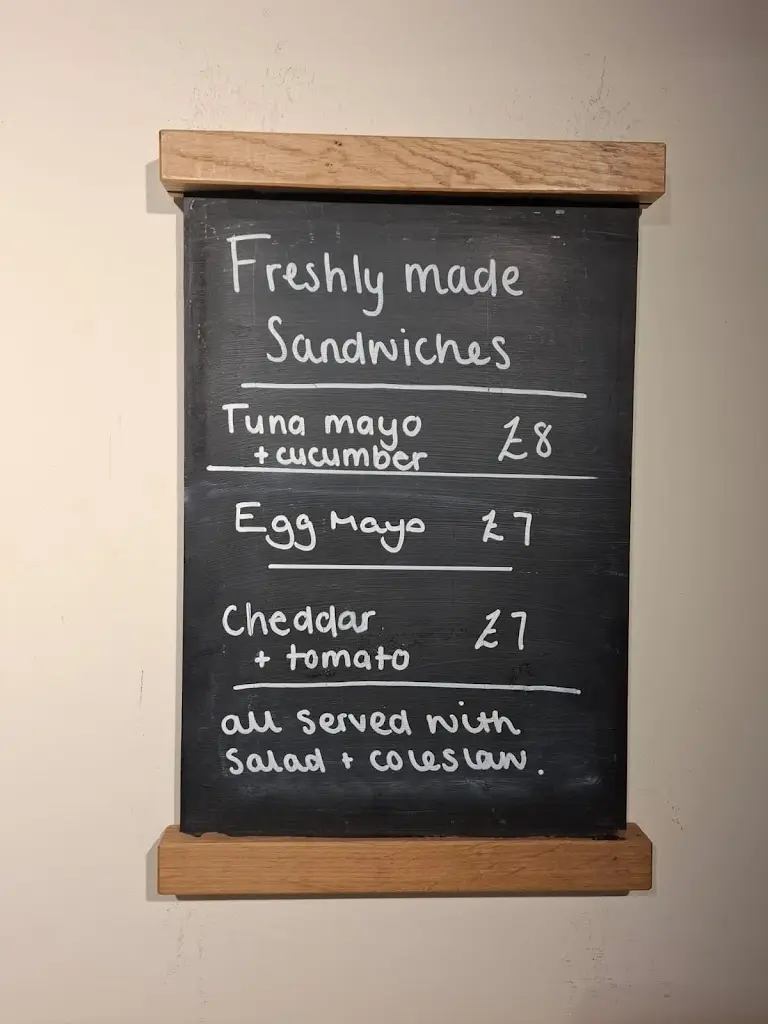 Freshly made
Sandwiches
Tuna mayo £8
+ cucumber
Egg Mayo £7
Cheddar £7
+ tomato
all served with
salad + coleslaw.